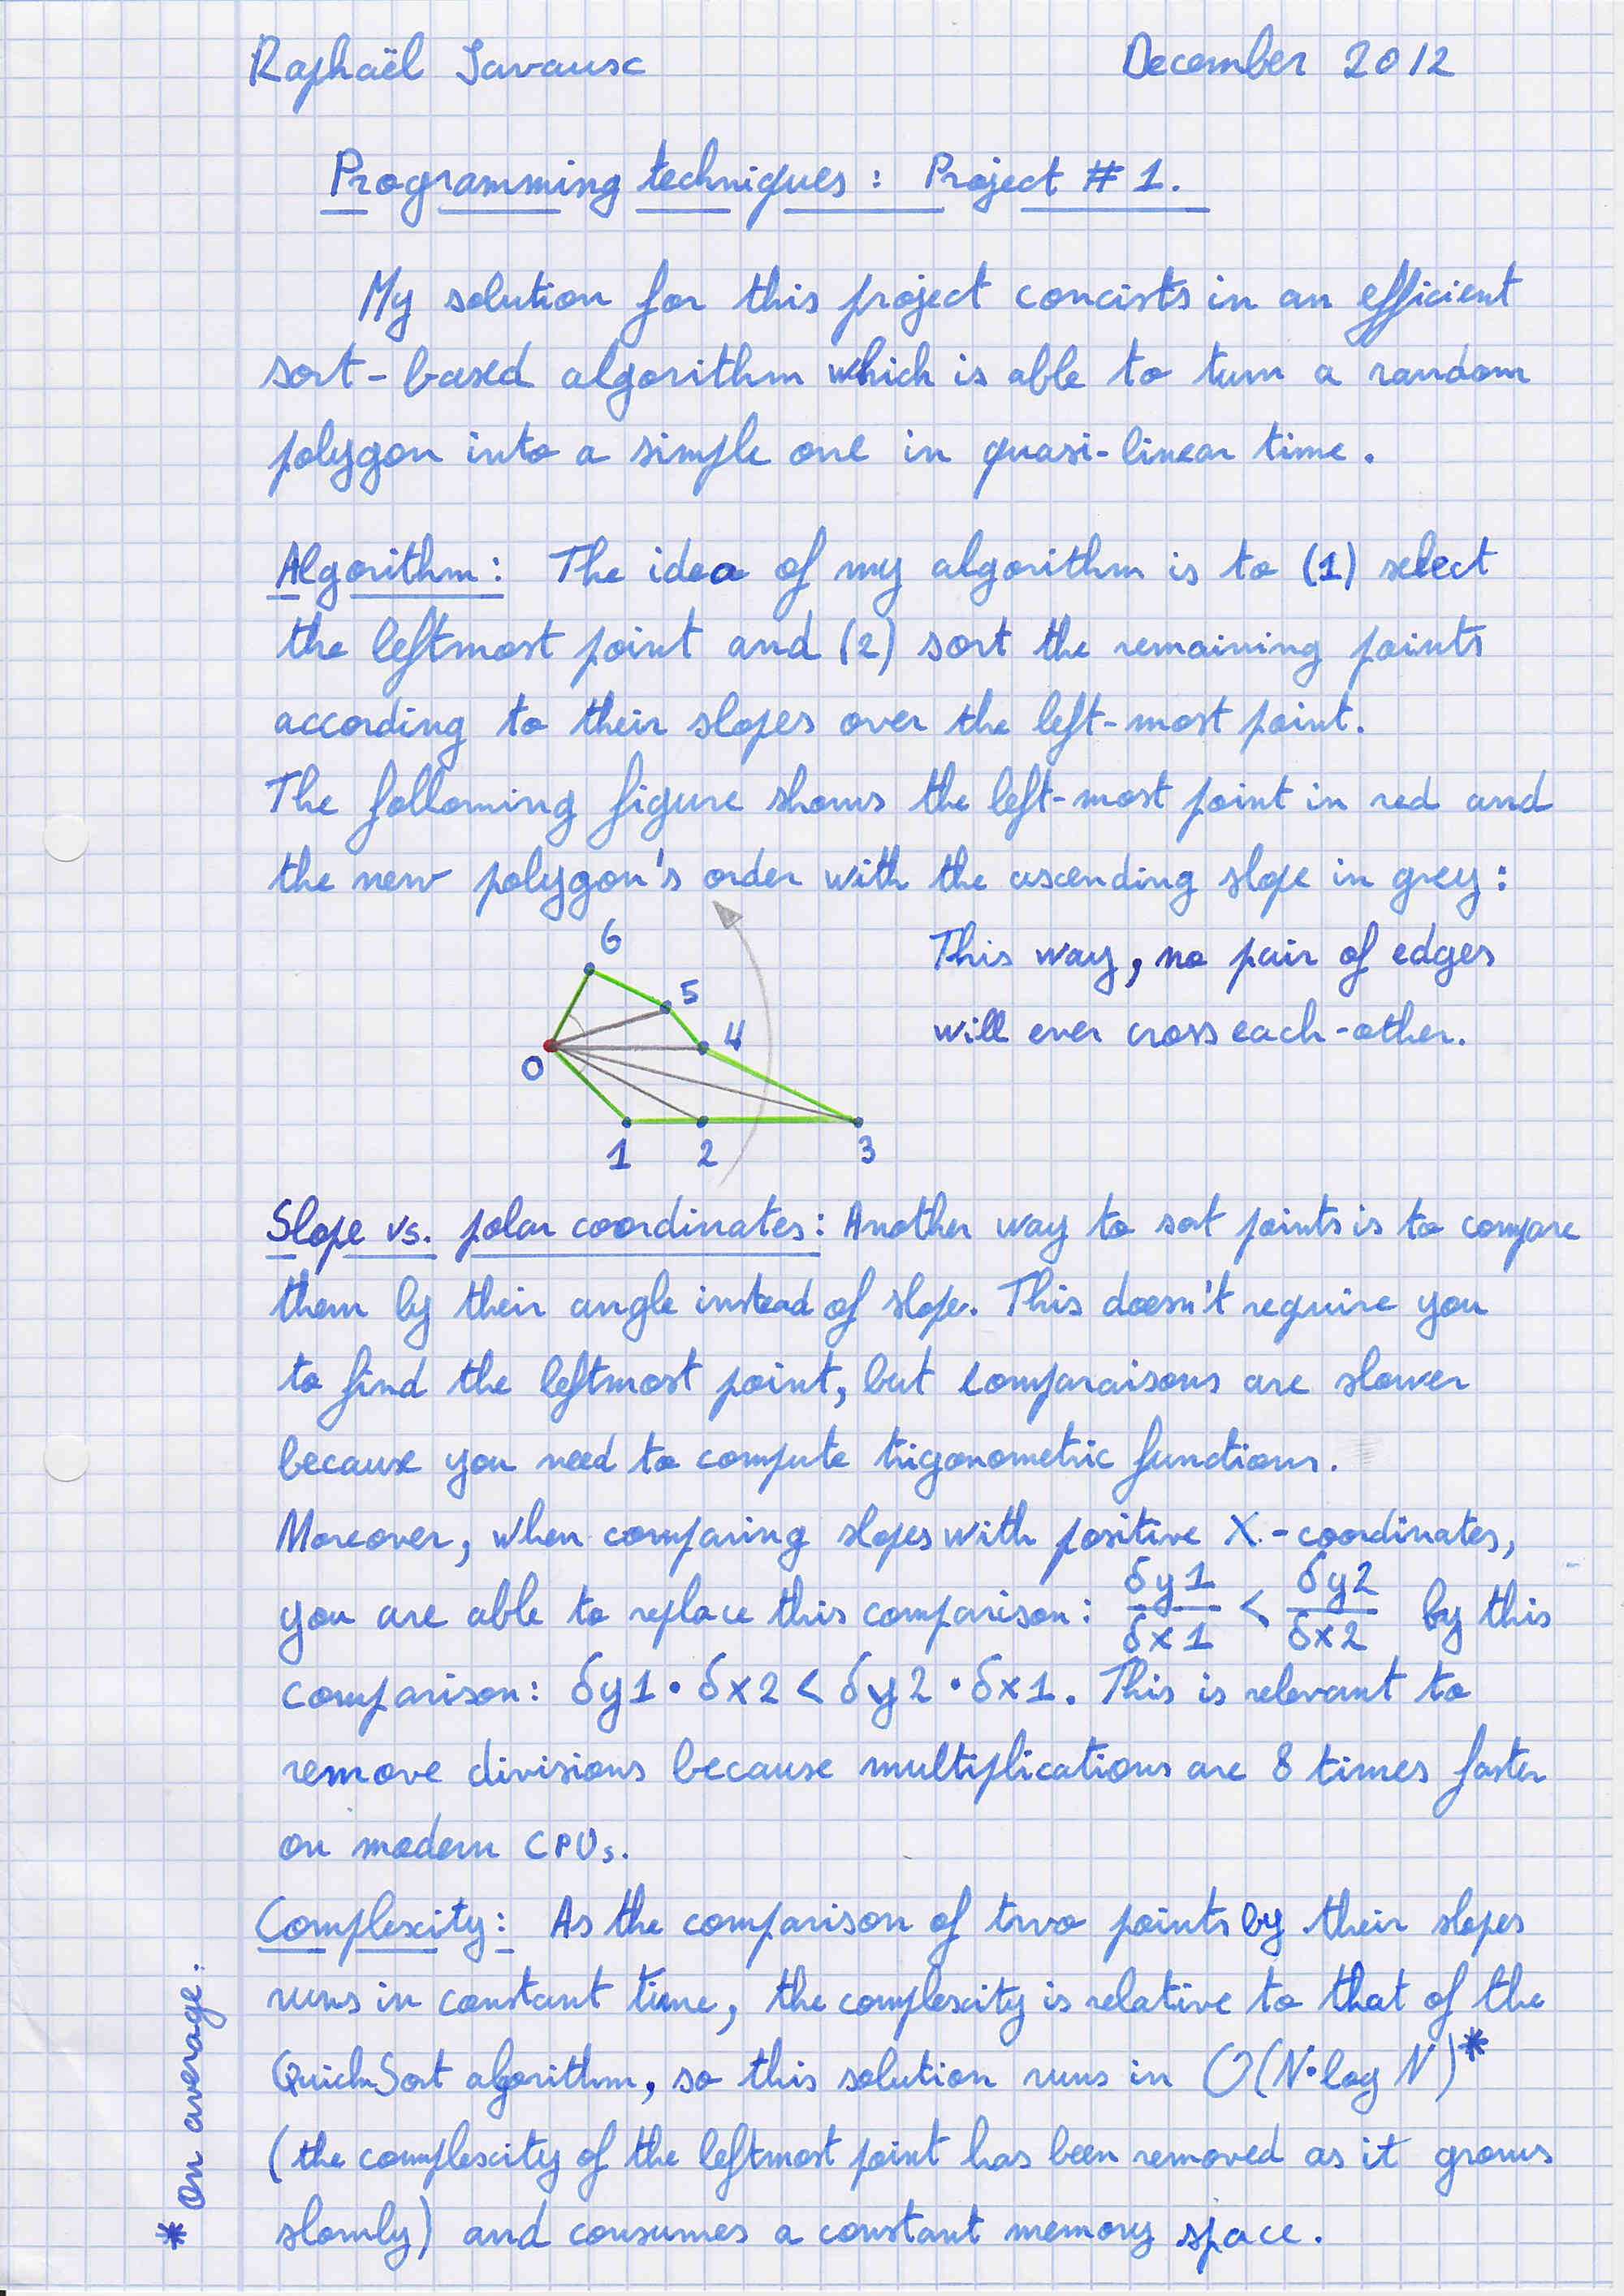 Raphaël Javaux December 2012
Programming techniques : Project # 1.
My solution for this project concists in an efficient
sort-based algorithm which is able to turn a random
polygon into a simple one in quasi-linear time.
Algorithm: The idea of my algorithm is to (1) select
the leftmost point and (2) sort the remaining points
according to their slopes over the left-most point.
The following figure shows the left-most point in red and
the new polygon's order with the ascending slope in grey:
This way, no pair of edges
will ever cross each-other.
6
5
4
0
1 2 3
Slope vs. polar coordinates: Another way to sort points is to compare
them by their angle instead of slope. This doesn't require you
to find the leftmost point, but comparaisons are slower
because you need to compute trigonometric functions.
Moreover, when comparing slopes with positive X-coordinates,
you are able to replace this comparison: δy1/δx1 < δy2/δx2 by this
comparison: δy1 · δx2 < δy2 · δx1. This is relevant to
remove divisions because multiplications are 8 times faster
on modern CPUs.
Complexity: As the comparison of two points by their slopes
runs in constant time, the complexity is relative to that of the
QuickSort algorithm, so this solution runs in O(N·log N)*
(the complexity of the leftmost point has been removed as it grows
slowly) and consumes a constant memory space.
* On average.